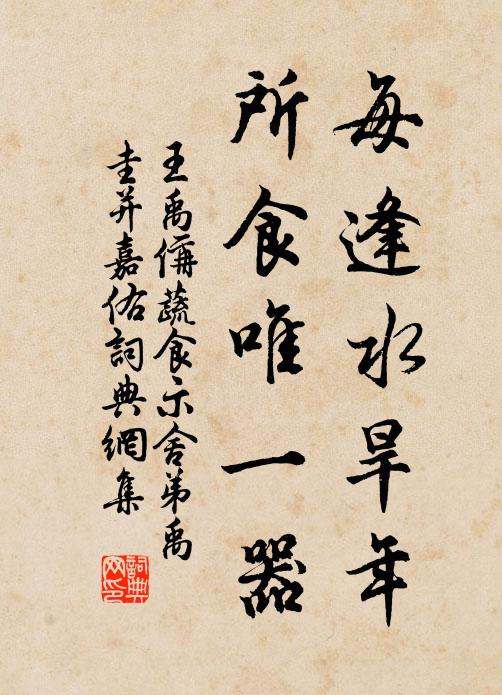 每逢水旱年
所食唯一器
王禹偁蔬食示舍弟禹
圭并嘉佑詞典網集
詞典
网印